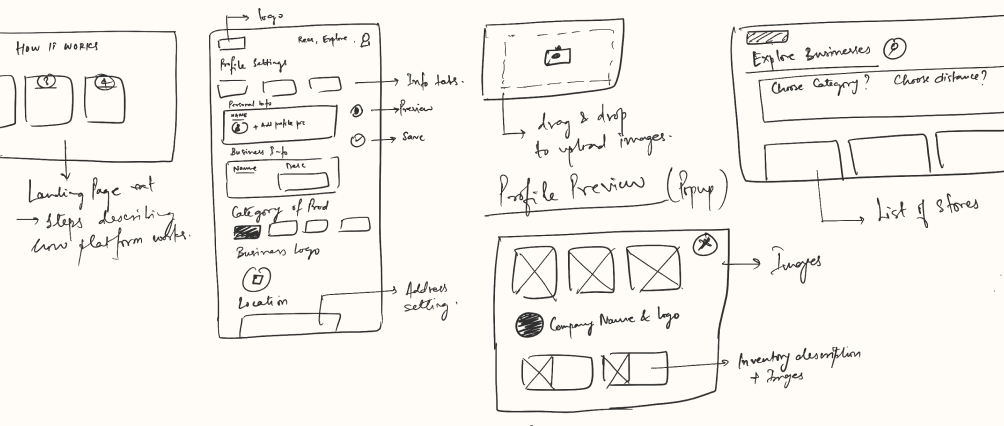 HOW IT WORKS
3
4
Landing Page
→ Steps describing
how platform works.
logo
Explore.
Profile Settings
Info tabs.
Personal Info
NAME
+ Add profile pic
Preview
Save
Business Info
Name
Category of Prod
Business Logo
Location
Address
setting.
drag & drop
to upload images.
Profile Preview (Popup)
Images
Company Name & Logo
Inventory description
+ Images
Explore Businesses
Choose Category? Choose distance?
List of Stores